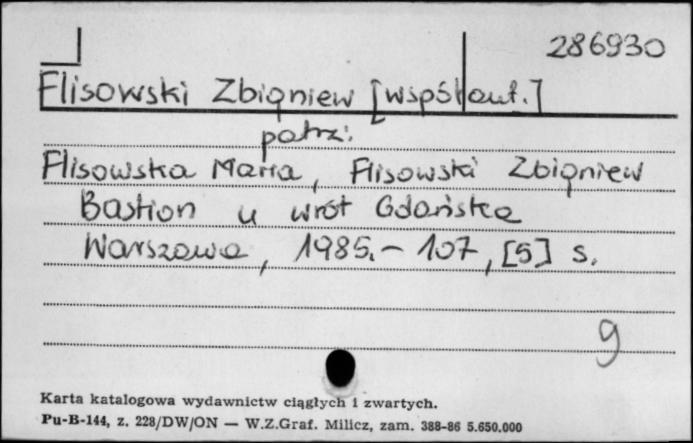 286930
Flisowski Zbigniew [współaut.]
patrz:
Flisowska Maria, Flisowski Zbigniew
Bastion u wrót Gdańska
Warszawa, 1985.- 107, [5] s.
9
Karta katalogowa wydawnictw ciągłych i zwartych.
Pu-B-144, z. 228/DW/ON — W.Z.Graf. Milicz, zam. 388-86 5.650.000